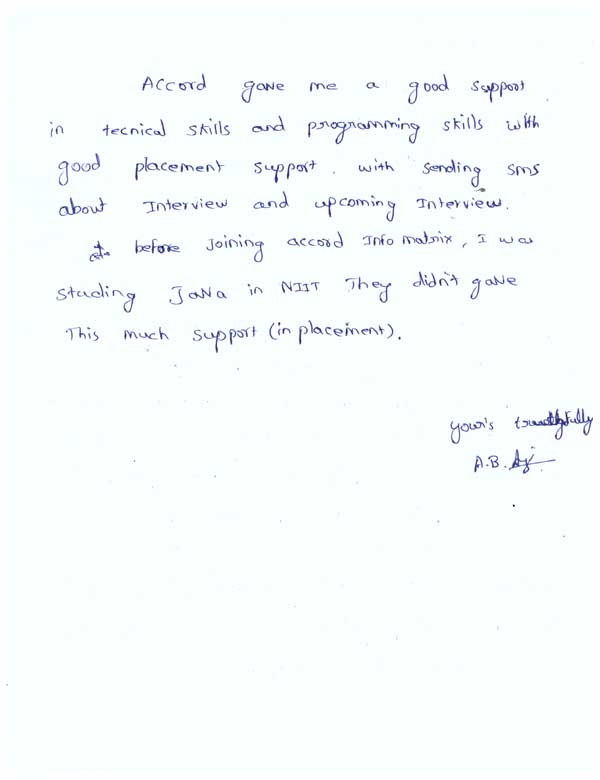 Accord gave me a good support
in tecnical skills and programming skills with
good placement support. with sending sms
about Interview and upcoming Interview.
before Joining accord Info matrix, I was
studing Java in NIIT They didn't gave
This much support (in placement).
your's
A.B.